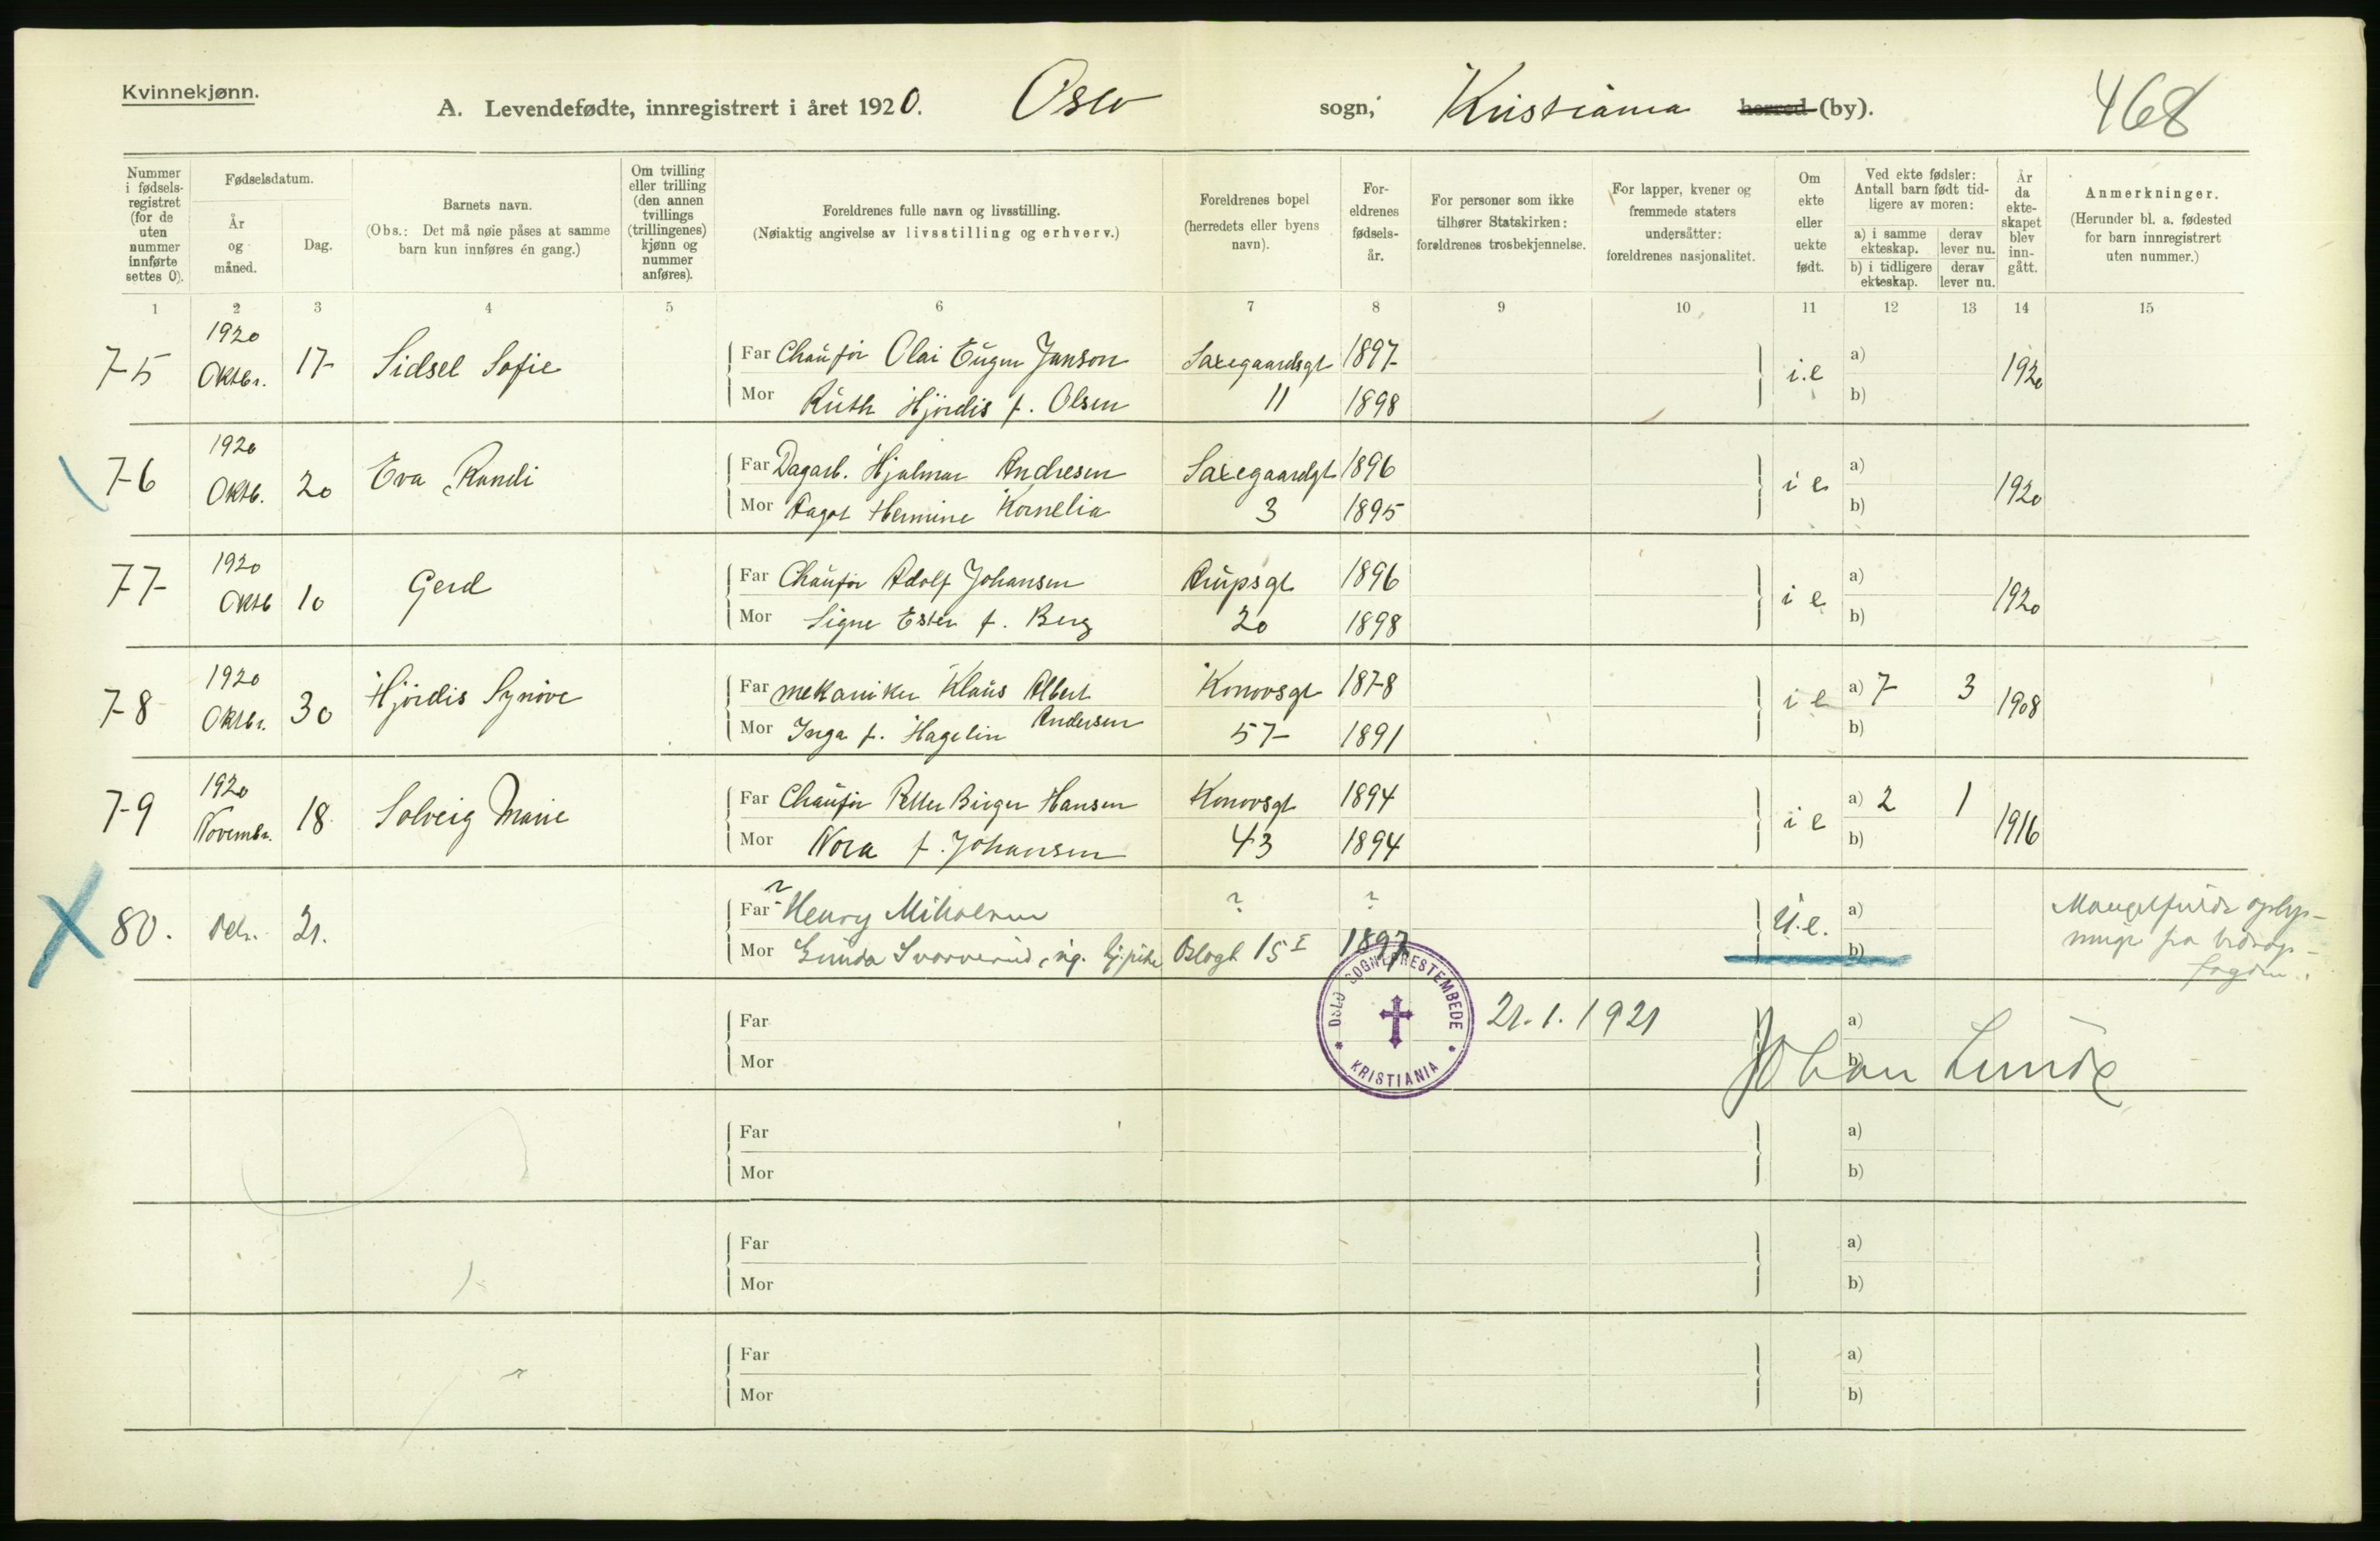 Kvinnekjønn.
A. Levendefødte, innregistrert i året 1920. Oslo sogn, Kristiania herred (by). 468
Nummer i fødselsregistret (for de uten nummer innførte settes 0).
Fødselsdatum.
År og måned.
Dag.
Barnets navn.
(Obs.: Det må nøie påses at samme barn kun innføres én gang.)
Om tvilling eller trilling (den annen tvillings (trillingenes) kjønn og nummer anføres).
Foreldrenes fulle navn og livsstilling.
(Nøiaktig angivelse av livsstilling og erhverv.)
Foreldrenes bopel
(herredets eller byens navn).
Foreldrenes fødselsår.
For personer som ikke tilhører Statskirken: foreldrenes trosbekjennelse.
For lapper, kvener og fremmede staters undersåtter: foreldrenes nasjonalitet.
Om ekte eller uekte født.
Ved ekte fødsler:
Antall barn født tidligere av moren:
a) i samme ekteskap. derav lever nu.
b) i tidligere ekteskap. derav lever nu.
År da ekteskapet blev inngått.
Anmerkninger.
(Herunder bl. a. fødested for barn innregistrert uten nummer.)
1 2 3 4 5 6 7 8 9 10 11 12 13 14 15
75 1920 Oktbr. 17 Sidsel Sofie Far Chaufør Olai Eugen Janson Saxegaardsgt 1897 i.e a) 1920
Mor Ruth Hjördis f. Olsen 11 1898 b)
76 1920 Oktb. 20 Eva Randi Far Dagarb. Hjalmar Andresen Saxegaardgt 1896 i e a) 1920
Mor Aagot Hermine Kornelia 3 1895 b)
77 1920 Oktb 10 Gerd Far Chaufør Adolf Johansen Arupsgt 1896 i e a) 1920
Mor Signe Ester f. Berg 20 1898 b)
78 1920 Oktbr. 30 Hjördis Synöve Far mekaniker Klaus Albert Andersen Konowsgt 1878 i e a) 7 3 1908
Mor Inga f. Hagelin 57 1891 b)
79 1920 Novembr. 18 Solveig Marie Far Chaufør Petter Birger Hansen Konowsgt 1894 i e a) 2 1 1916
Mor Nora f. Johansen 43 1894 b)
80. 21. Far ? Henry ? ? U.e. a) Mangelfulde
Mor Gunda Oslogt 15 I 1897 b) fra
Far 21.1.1921 a)
Mor b) Johan Lunde
OSLO SOGNEPRESTEMBEDE * KRISTIANIA *
Far a)
Mor b)
Far a)
Mor b)
Far a)
Mor b)